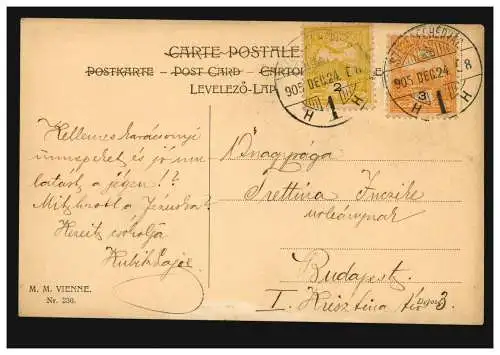 CARTE POSTALE
POSTKARTE – POST CARD – CARTO
LEVELEZŐ-LAP
905 DEC. 24.
8
H 1 H
2
905 DEC. 24.
8
H 1 H
3
Kellemes karácsonyi
ünnepeket és jó mu-
latást a jégen!!
Mit hozott a Jézuska?
Kezeit csókolja
Lajos
M. M. VIENNE.
Nr. 236.
Őnagysága
Trettina Inczike
urleánynak
Budapest
I. Krisztina tér 3.